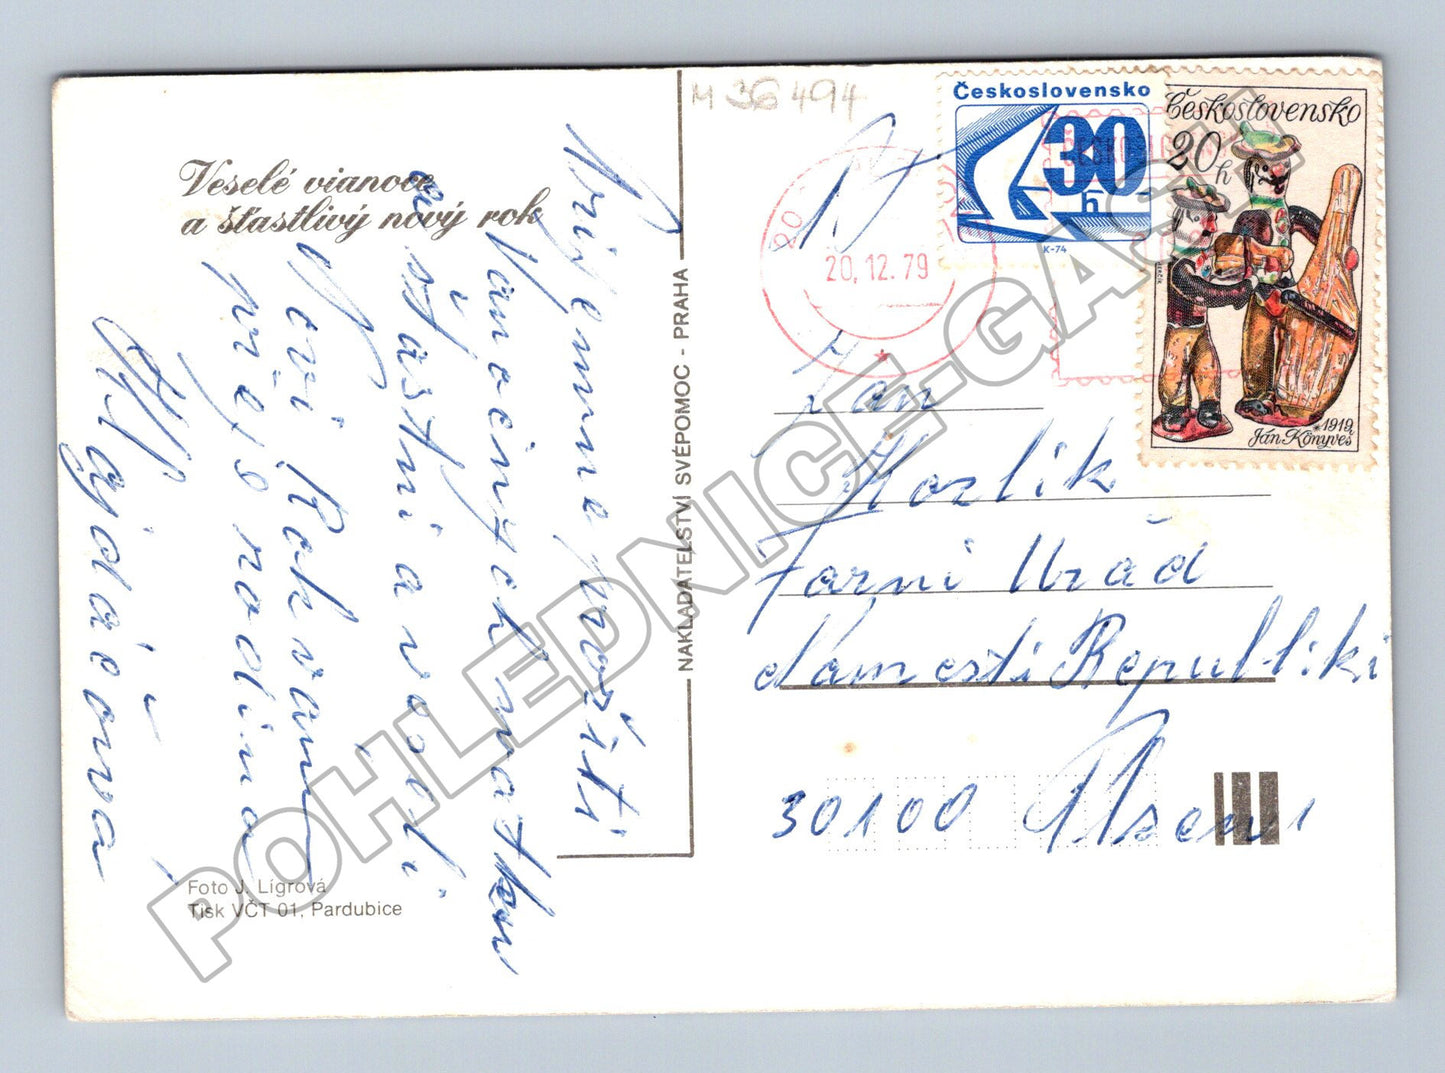 M 36 494
Veselé vianoce
a šťastlivý nový rok
Príjemne prožití
Vánočných svatku
a štastni a veseli
Novi Rok vam
přejs rodinu
Hajdáčova
NAKLADATELSTVÍ SVÉPOMOC - PRAHA
Foto J. Lígrová
Tisk VČT 01, Pardubice
Československo
30
h
K-74
Československo
20 h
*1919
Ján Könyves
20. 12. 79
Pt
Jan
Horlik
Farni Uřád
Namesti Republiki
30100 Plzen 1
POHLEDNICE-GASH